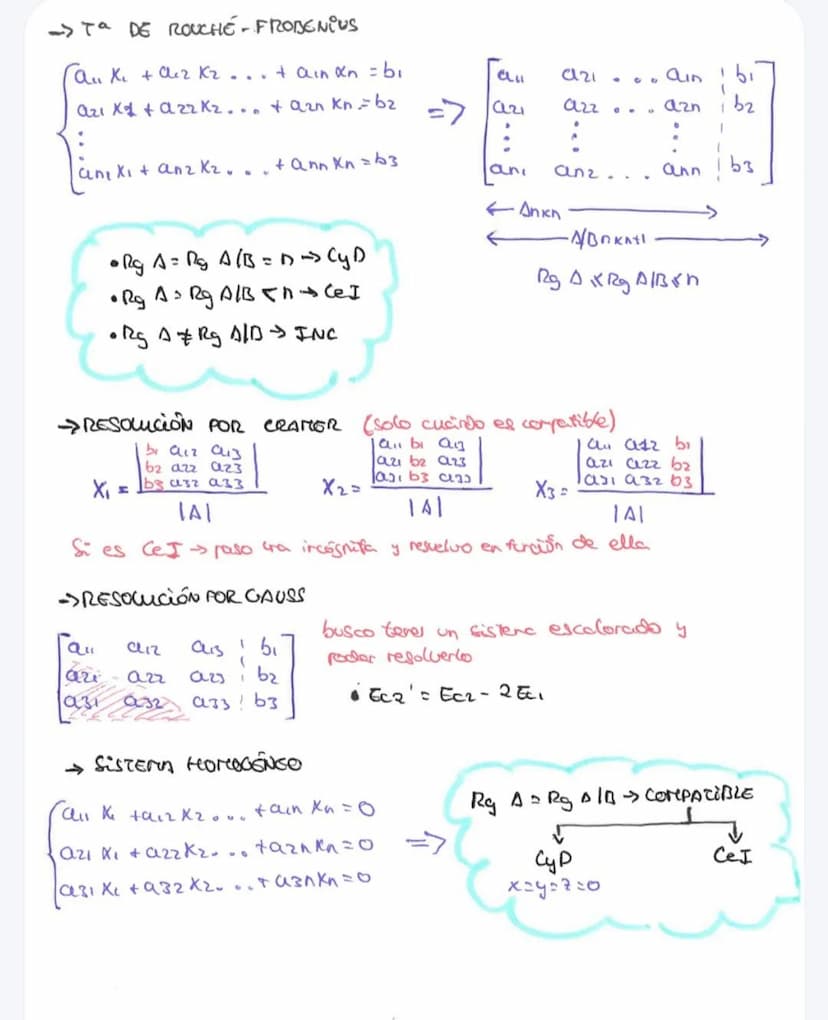 → Tª DE ROUCHÉ-FROBENIUS
a11 x1 + a12 x2 ... + a1n xn = b1
a21 x1 + a22 x2 ... + a2n xn = b2
⋮
an1 x1 + an2 x2 ... + ann xn = b3
=>
a11 a21 ... a1n | b1
a21 a22 ... a2n | b2
⋮ ⋮ ⋮
an1 an2 ... ann | b3
← Anxn →
← A/Bnxn+1 →
Rg A ≤ Rg A/B ≤ n
• Rg A = Rg A/B = n → CyD
• Rg A = Rg A/B < n → CeI
• Rg A ≠ Rg A/B → INC
→ RESOLUCIÓN POR CRAMER (solo cuando es compatible)
x1 = |b1 a12 a13
b2 a22 a23
b3 a32 a33| / |A|
x2 = |a11 b1 a13
a21 b2 a23
a31 b3 a33| / |A|
x3 = |a11 a12 b1
a21 a22 b2
a31 a32 b3| / |A|
Si es CeI → paso 1ra incógnita y resuelvo en función de ella
→ RESOLUCIÓN POR GAUSS
a11 a12 a13 | b1
a21 a22 a23 | b2
a31 a32 a33 | b3
busco tener un sistema escalorado y
poder resolverlo
• Ec2' = Ec2 - 2Ec1
→ SISTEMA HOMOGÉNEO
a11 x1 + a12 x2 ... + a1n xn = 0
a21 x1 + a22 x2 ... + a2n xn = 0
a31 x1 + a32 x2 ... + a3n xn = 0
=>
Rg A = Rg A/B → COMPATIBLE
CyD CeI
x=y=z=0